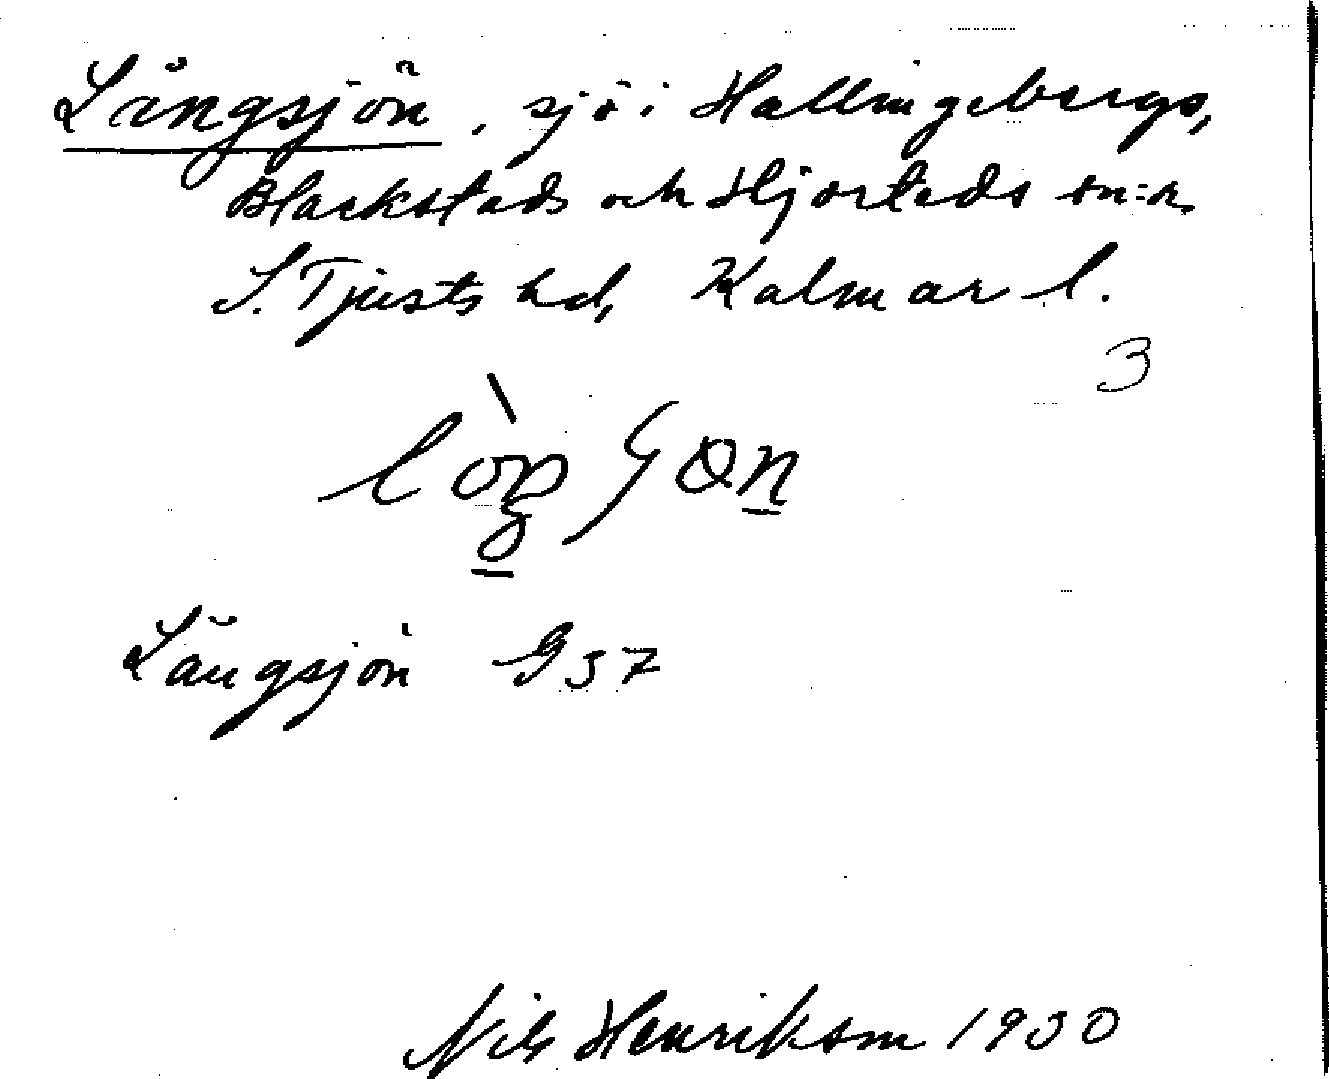 Långsjön, sjö i Hallingebergs,
Blackstads och Hjorteds sn:r.
S. Tjusts hd, Kalmar l.
3
Långsjön G 37
Nils Henrikson 1930